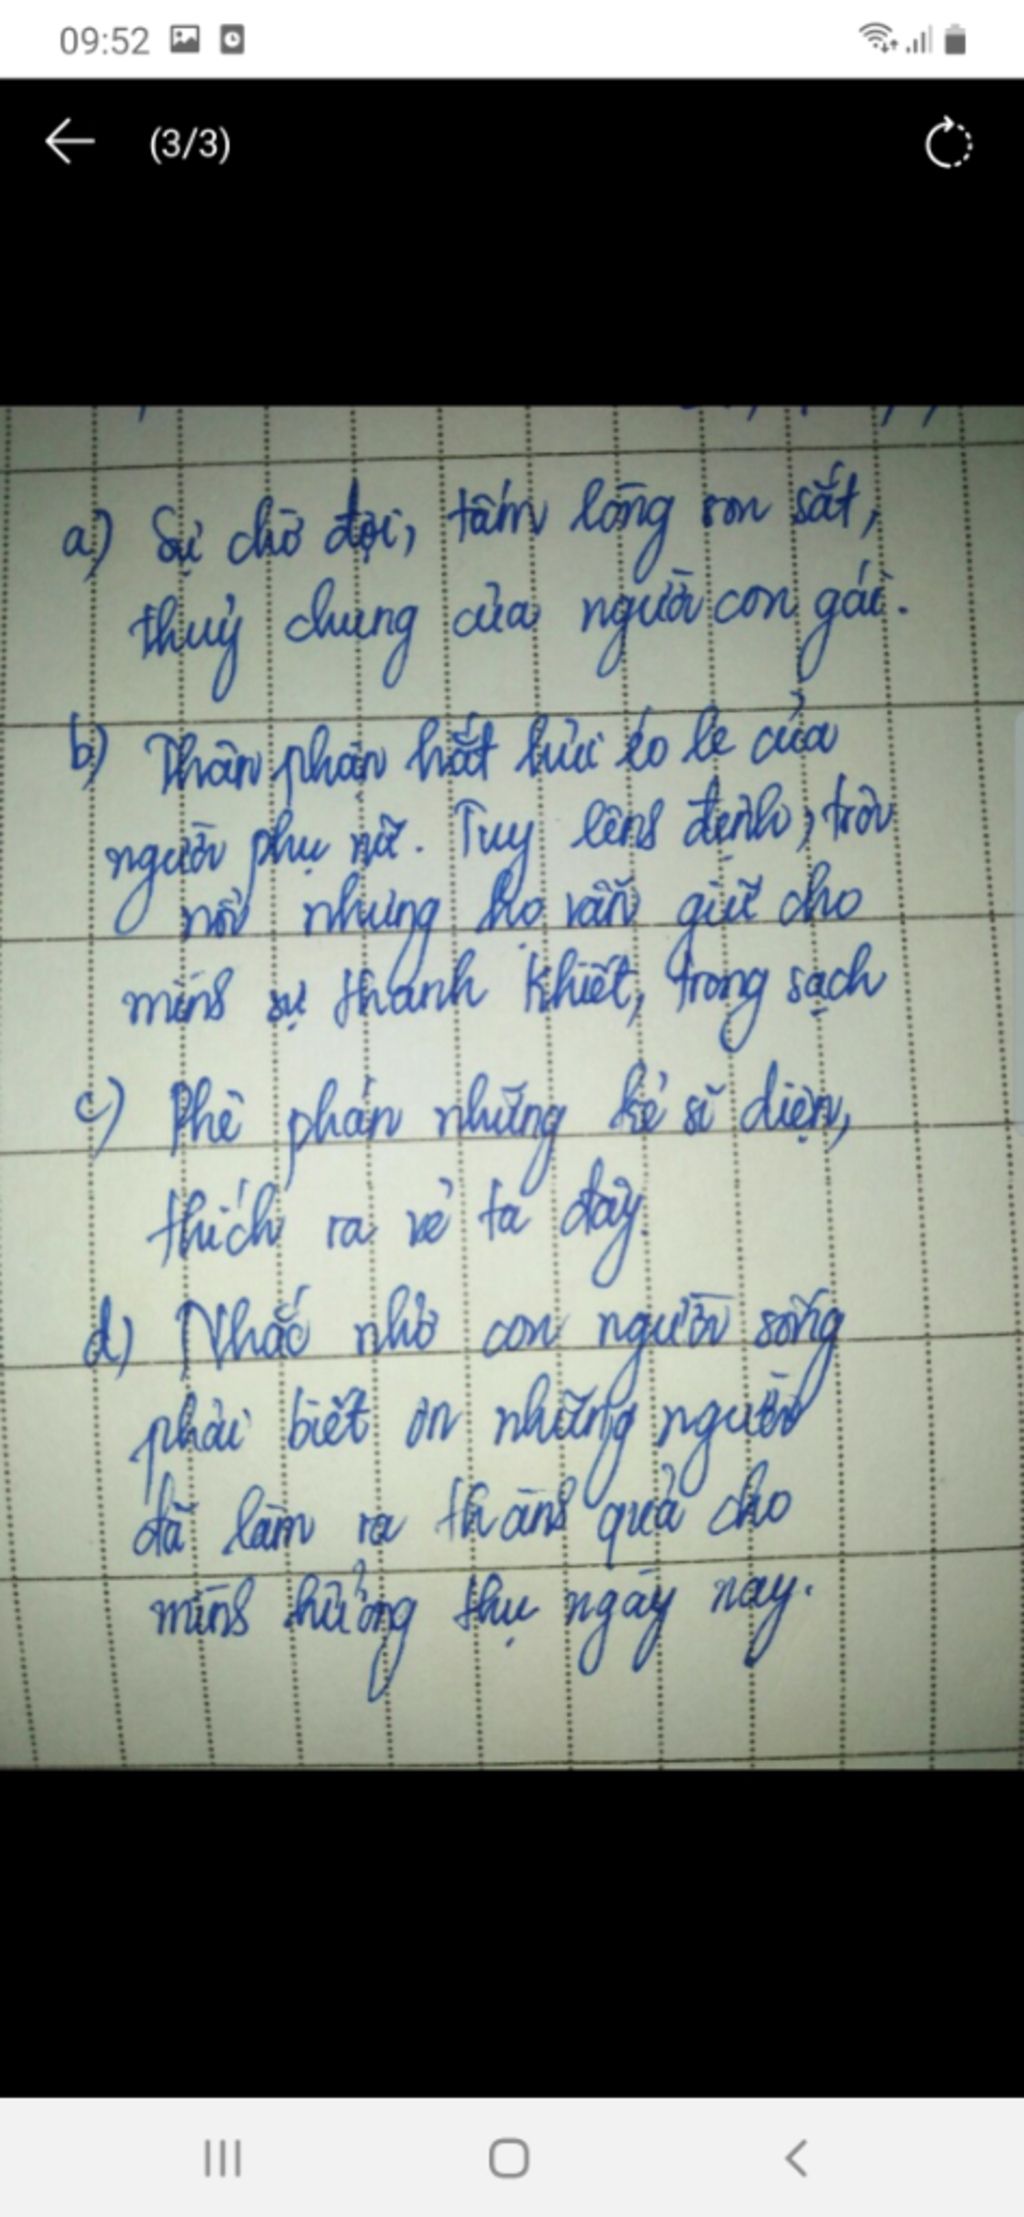 09:52
(3/3)
a) Sự chờ đợi, tấm lòng son sắt,
thuỷ chung của người con gái.
b) Thân phận hắt hủi éo le của
người phụ nữ. Tuy lênh đênh, trôi
nổi nhưng họ vẫn giữ cho
mình sự thanh khiết, trong sạch
c) Phê phán những kẻ sĩ diện,
thích ra vẻ ta đây.
d) Nhắc nhở con người sống
phải biết ơn những người
đã làm ra thành quả cho
mình hưởng thụ ngày nay.